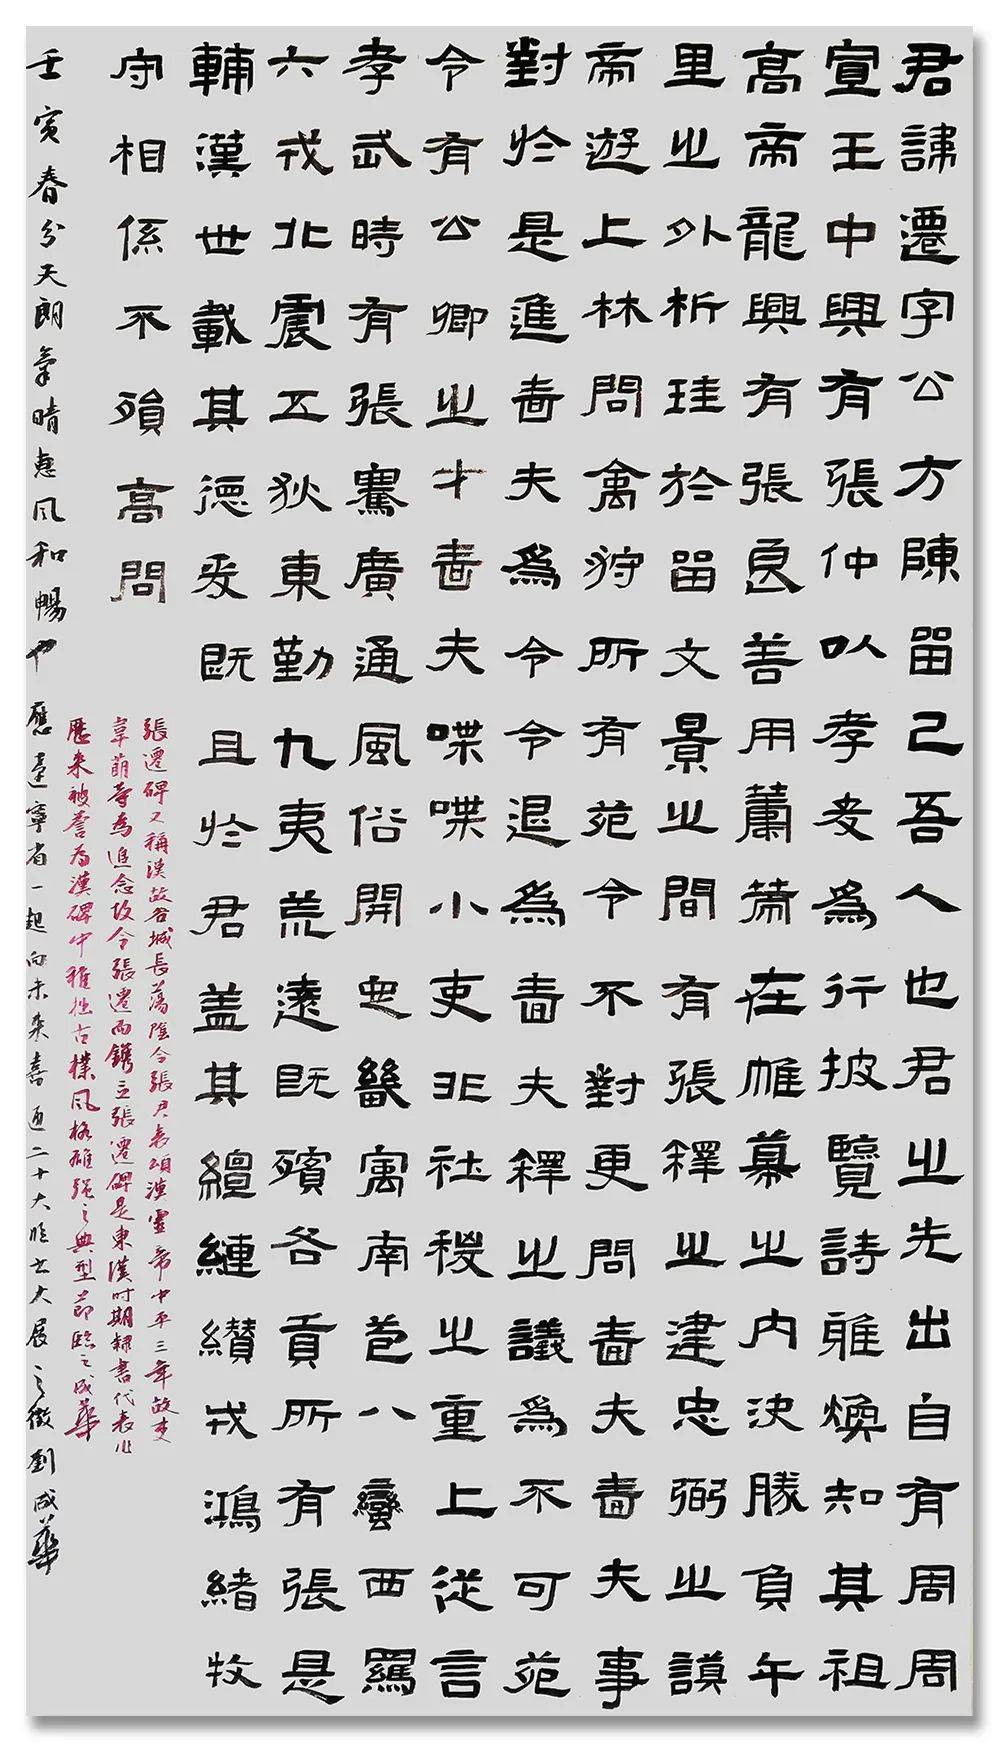 君諱遷字公方陳留己吾人也君之先出自有周周
宣王中興有張仲以孝友為行披覽詩雅煥知其祖
高帝龍興有張良善用籌策在帷幕之內決勝負千
里之外析珪於留文景之間有張釋之建忠弼之謨
帝遊上林問禽狩所有苑令不對更問嗇夫嗇夫事
對於是進嗇夫為令令退為嗇夫釋之議為不可苑
令有公卿之才嗇夫喋喋小吏非社稷之重上從言
孝武時有張騫廣通風俗開定畿寓南苞八蠻西羈
六戎北震五狄東勤九夷荒遠既殯各貢所有張是
輔漢世載其德爰既且於君蓋其繵縺纘戎鴻緒牧
守相係不殞高問
張遷碑又稱漢故谷城長蕩陰令張君表頌漢靈帝中平三年故吏
韋萌等為追念故令張遷而鐫立張遷碑是東漢時期隸書代表作
歷來被譽為漢碑中稚拙古樸風格雄強之典型節臨之成華
壬寅春分天朗氣晴惠風和暢也應遼寧省一起向未來喜迎二十大臨書大展之徵劉成華